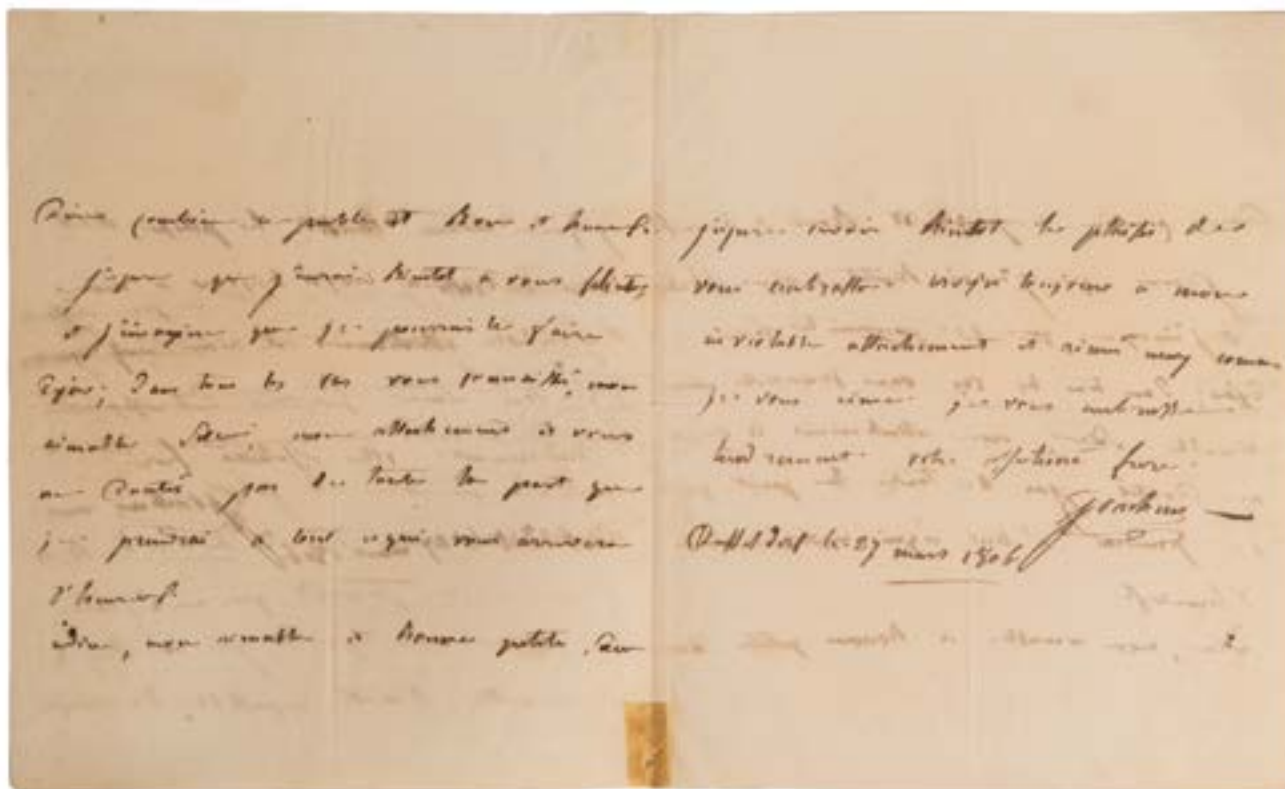 combien le public est bon et
j'espère que j'aurai bientot a vous féliciter
et j'imagine que je pourrai le faire
dans tous les cas vous connaissés, mon
aimable mon attachement et vous
ne doutés pas de toute la part que
je prendrai a tout ce qui vous arrivera
d'heureux
adieu, mon aimable et bonne petite sœur
j'espère avoir bientot le plaisir de
vous embrasser croyés toujours a mon
inviolable attachement et aimés moy comme
je vous aime je vous embrasse
tendrement votre frere
Joachim
Dusseldorf le 27 mars 1806
2